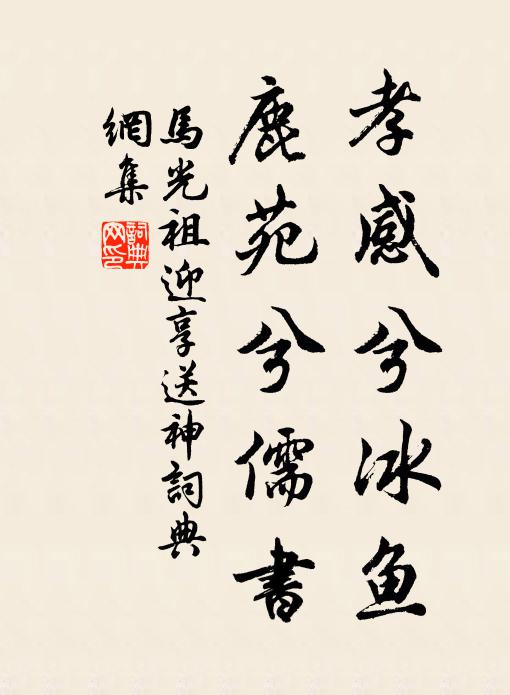 孝感兮冰鱼
鹿苑兮儒書
馬光祖迎享送神詞典
網集
詞典網印